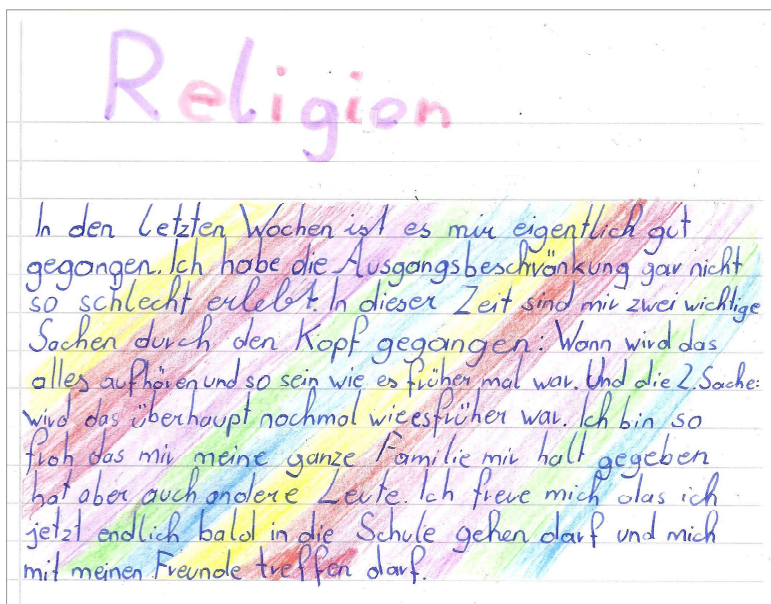 Religion
In den letzten Wochen ist es mir eigentlich gut
gegangen. Ich habe die Ausgangsbeschränkung gar nicht
so schlecht erlebt. In dieser Zeit sind mir zwei wichtige
Sachen durch den Kopf gegangen: Wann wird das
alles aufhören und so sein wie es früher mal war. Und die 2. Sache:
wird das überhaupt nochmal wie es früher war. Ich bin so
froh das mir meine ganze Familie mir halt gegeben
hat aber auch andere Leute. Ich freue mich das ich
jetzt endlich bald in die Schule gehen darf und mich
mit meinen Freunde treffen darf.